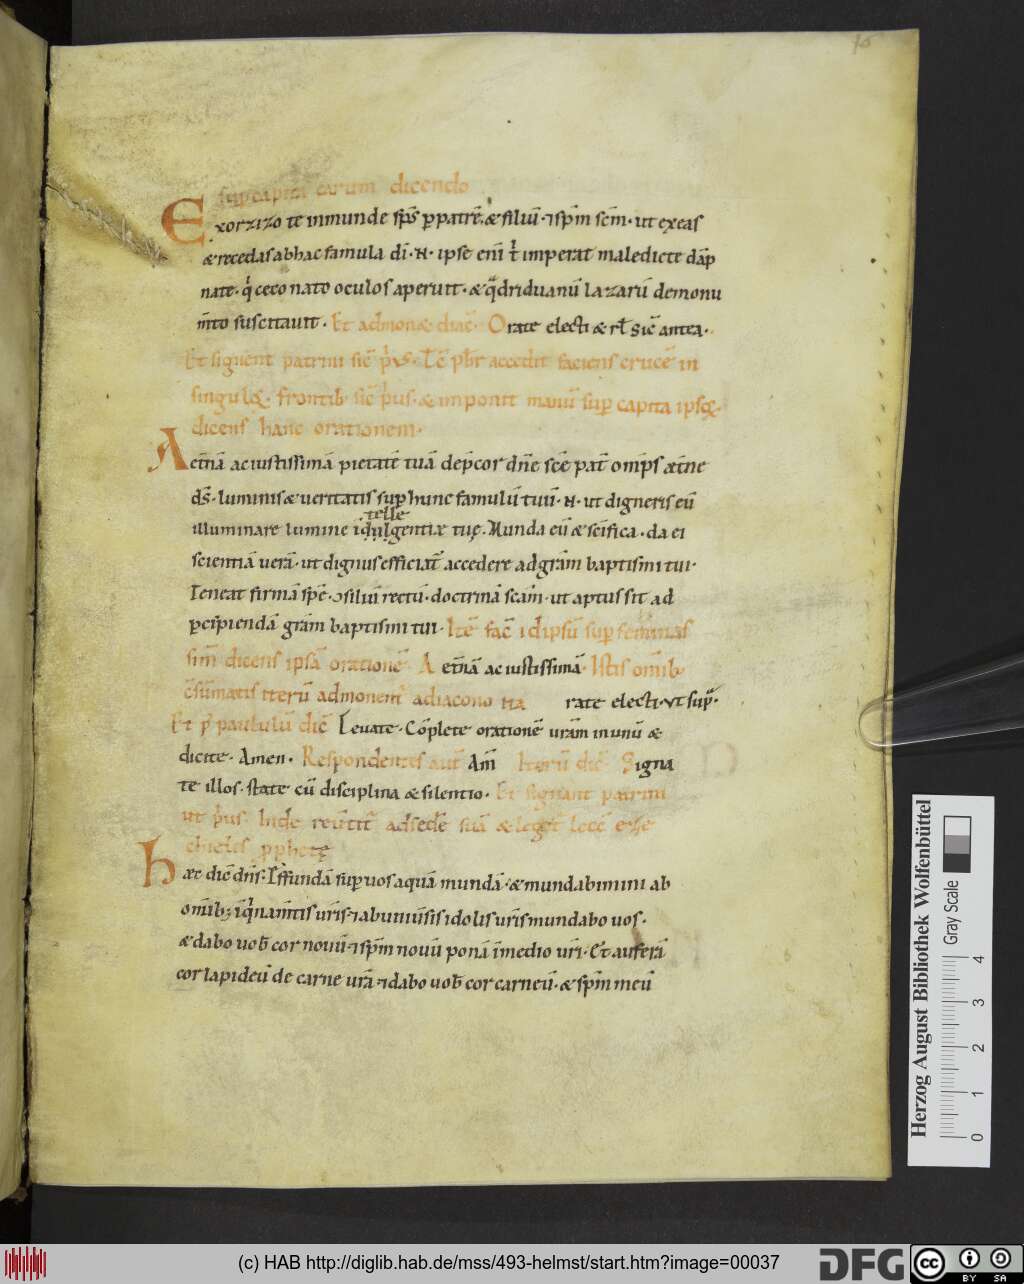 15
sup capita earum dicendo
Exorzizo te inmunde sps̄ ꝑ patrē. & filiū. ⁊ spm̄ scm̄. ut exeas
& recedas ab hac famula dī. N. ipse eni t' imperat maledicte dāp
nate. q' ceco nato oculos aperuit. & q̄driduanū lazarū demonu
m̄to suscitauit. Et admon& diac̄. Orate electi & rl̄ sic̄ antea.
Et signent patrini sic̄ p'us. Tc̄ pbr̄ accedit faciens crucē in
singulꝝ frontib. sic̄ p'us. & imponit manū sup capita ipsꝝ.
dicens hanc orationem.
Aetnā ac iustissimā pietatē tuā dep̄cor dn̄e sc̄e pat̄ omīps aetne
ds̄. luminis & ueritatis sup hunc famulū tuū. N. ut digneris eū
telle
illuminare lumine īq̄ulgentiæ tuę. Munda eū & scīfica. da ei
scientiā uerā. ut dignus efficiat' accedere ad gram̄ baptismi tui.
Teneat firmā spē. ↄsiliū rectū. doctrinā scam̄. ut aptus sit ad
ꝑcipiendā gram̄ baptismi tui. Itē fac̄ idipsū sup feminas
sim̄ dicens ipsā orationē. A etnā ac iustissimā. Istis omīb.
c̄sūmatis iterū admonent' a diacono ita rate electi. ut sup̄.
Et p' paululū dic̄ Leuate. Cōplete orationē uram̄ in unū &
dicite. Amen. Respondentes aut̄ Am̄ Iterū dic̄ Signa
te illos. state cū disciplina & silentio. Et signant patrini
ut p'us. Inde reūtit̄ ad sedē suā & leget̄ lec̄ eze
chielis ꝓphetę
Hæc dic̄ dn̄s. Effundā sup uos aquā mundā. & mundabimini ab
omīb; īq̄namtis uris̄. ⁊ ab uniūsis idolis uris̄ mundabo uos.
& dabo uob̄ cor nouū. ⁊ spm̄ nouū ponā ī medio uri̅. Et auferā
cor lapideū de carne urā. ⁊ dabo uob̄ cor carneū. & spm̄ meū
Herzog August Bibliothek Wolfenbüttel
Gray Scale
0 1 2 3 4
(c) HAB http://diglib.hab.de/mss/493-helmst/start.htm?image=00037
DFG
cc BY SA